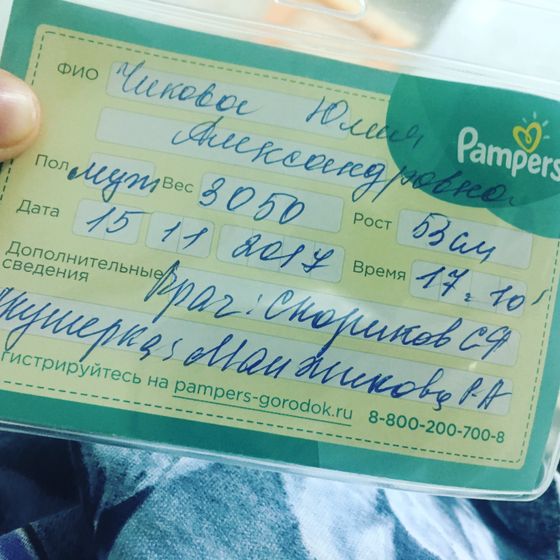 ФИО Чикова Юлия
Александровна
Pampers
Пол муж Вес 3050 Рост 53 см
Дата 15 11 2017 Время 17:10
Дополнительные сведения Врач: Скориков СФ
кушерка: Манжикова Р.А
гистрируйтесь на pampers-gorodok.ru 8-800-200-700-8